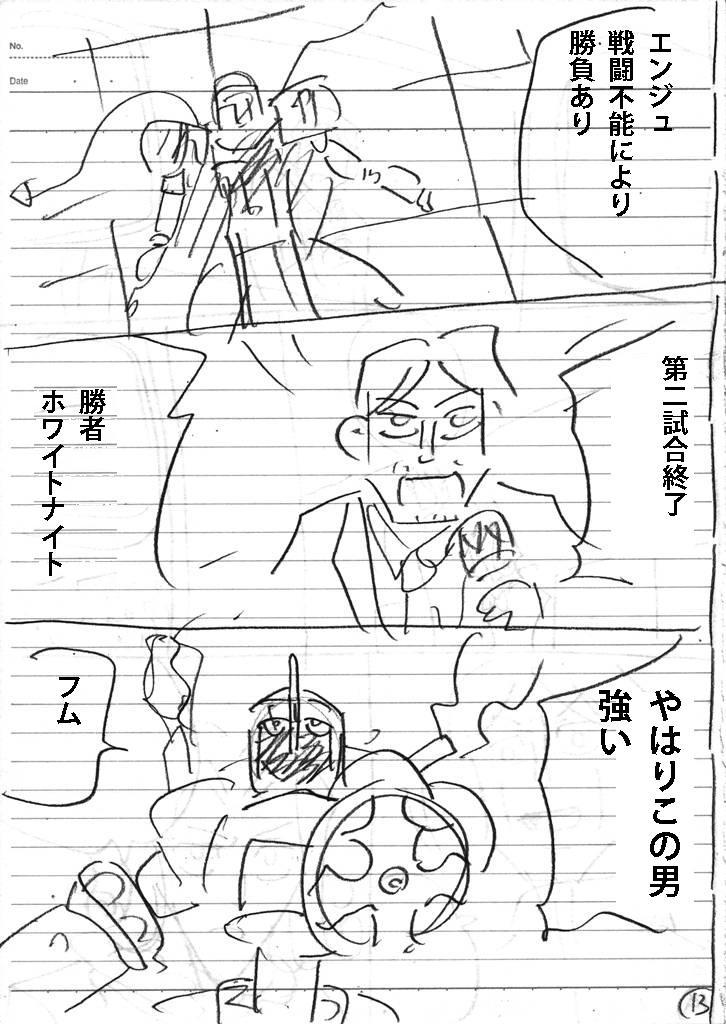 No.
Date
エンジュ
戦闘不能により
勝負あり
第二試合終了
勝者
ホワイトナイト
やはりこの男
強い
フム
13